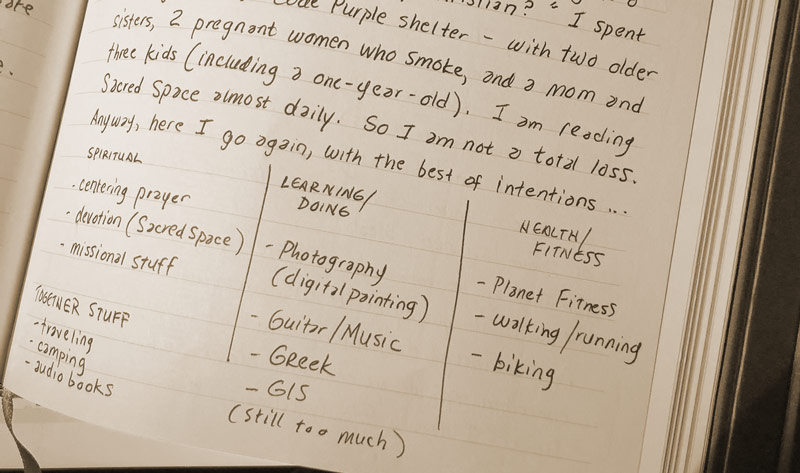 Purple shelter - with two older
sisters, 2 pregnant women who smoke, and a mom and
three kids (including a one-year-old). I am reading
Sacred Space almost daily. So I am not a total loss.
Anyway, here I go again, with the best of intentions ...
SPIRITUAL
· centering prayer
- devotion (Sacred Space)
- missional stuff
TOGETHER STUFF
- traveling
- camping
- audio books
LEARNING/
DOING
- Photography
(digital painting)
- Guitar/Music
- Greek
- GIS
(still too much)
HEALTH/
FITNESS
- Planet Fitness
- walking/running
- biking